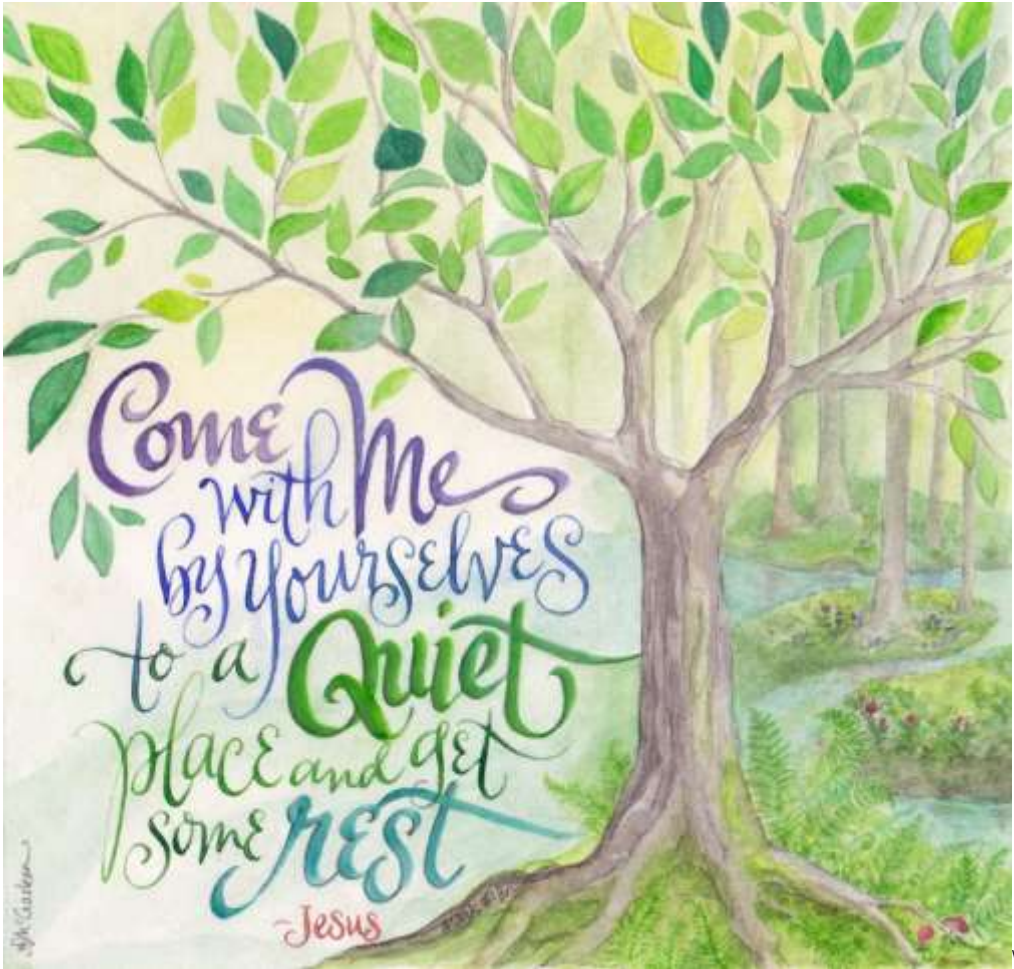 Come Me
with
by yourselves
to a Quiet
place and get
some rest
-Jesus